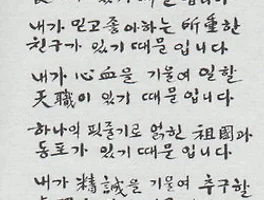 내가 믿고 좋아하는 所重한
친구가 있기 때문입니다
내가 心血을 기울여 일할
天職이 있기 때문입니다
하나의 핏줄기로 얽힌 祖國과
동포가 있기 때문입니다
내가 精誠을 기울여 추구할